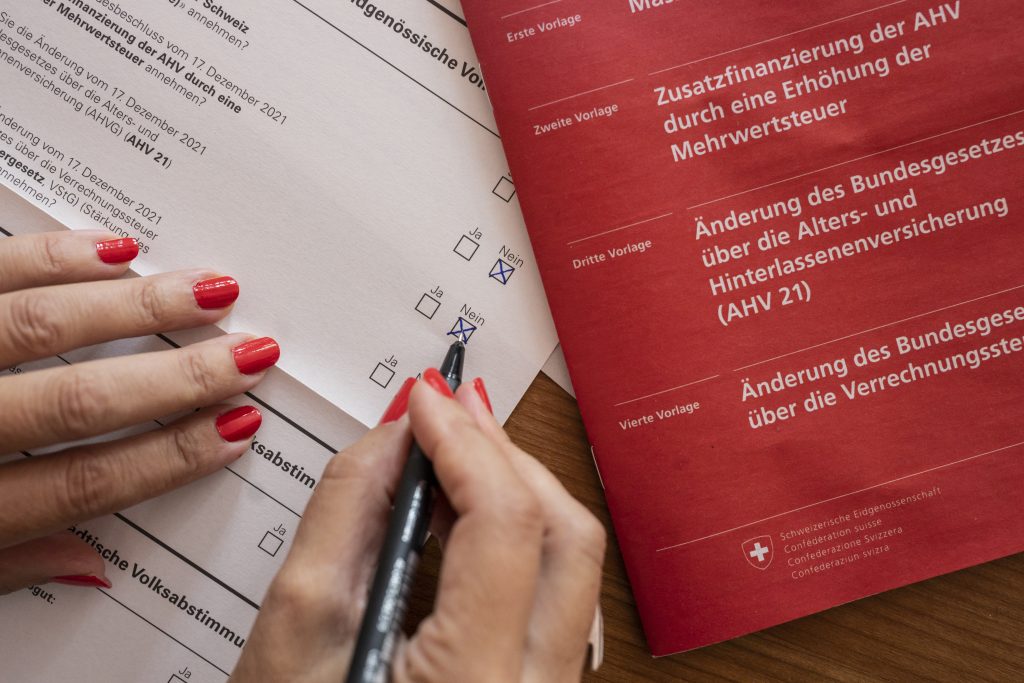 Schweiz
annehmen?
desbeschluss vom 17. Dezember 2021
finanzierung der AHV durch eine
Mehrwertsteuer annehmen?
Sie die Änderung vom 17. Dezember 2021
desgesetzes über die Alters- und
nenversicherung (AHVG) (AHV 21)
Änderung vom 17. Dezember 2021
tzes über die Verrechnungssteuer
ergesetz, VStG) (Stärkung des
annehmen?
Eidgenössische Vol
Ja
Nein
Ja
Nein
Ja
olksabstimm
Ja
dtische Volksabstimmu
gut:
Ja
Erste Vorlage
Mas
Zweite Vorlage
Zusatzfinanzierung der AHV
durch eine Erhöhung der
Mehrwertsteuer
Dritte Vorlage
Änderung des Bundesgesetzes
über die Alters- und
Hinterlassenenversicherung
(AHV 21)
Vierte Vorlage
Änderung des Bundesgese
über die Verrechnungsste
Schweizerische Eidgenossenschaft
Confédération suisse
Confederazione Svizzera
Confederaziun svizra